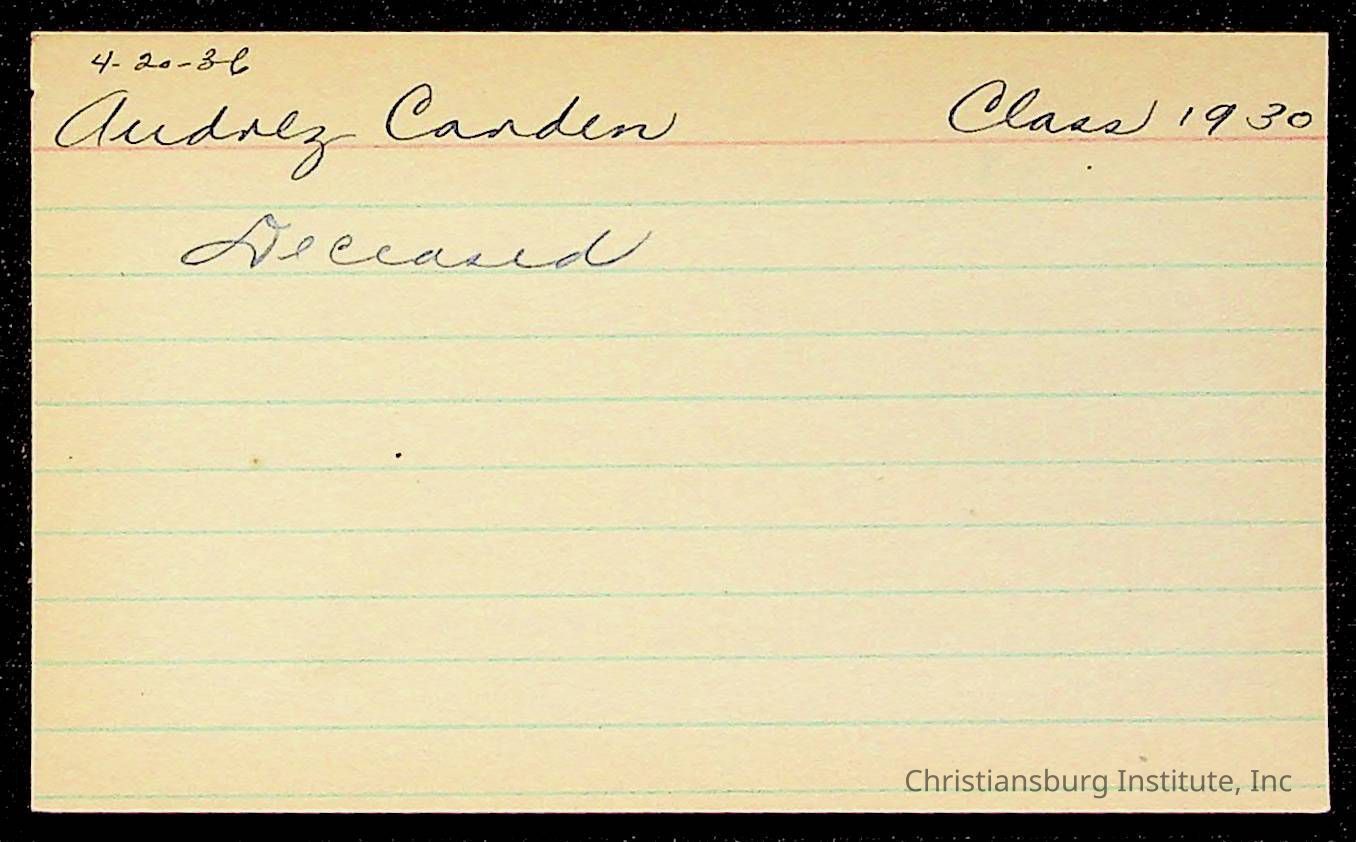 4-20-36
Audrey Carden Class 1930
Deceased
Christiansburg Institute, Inc